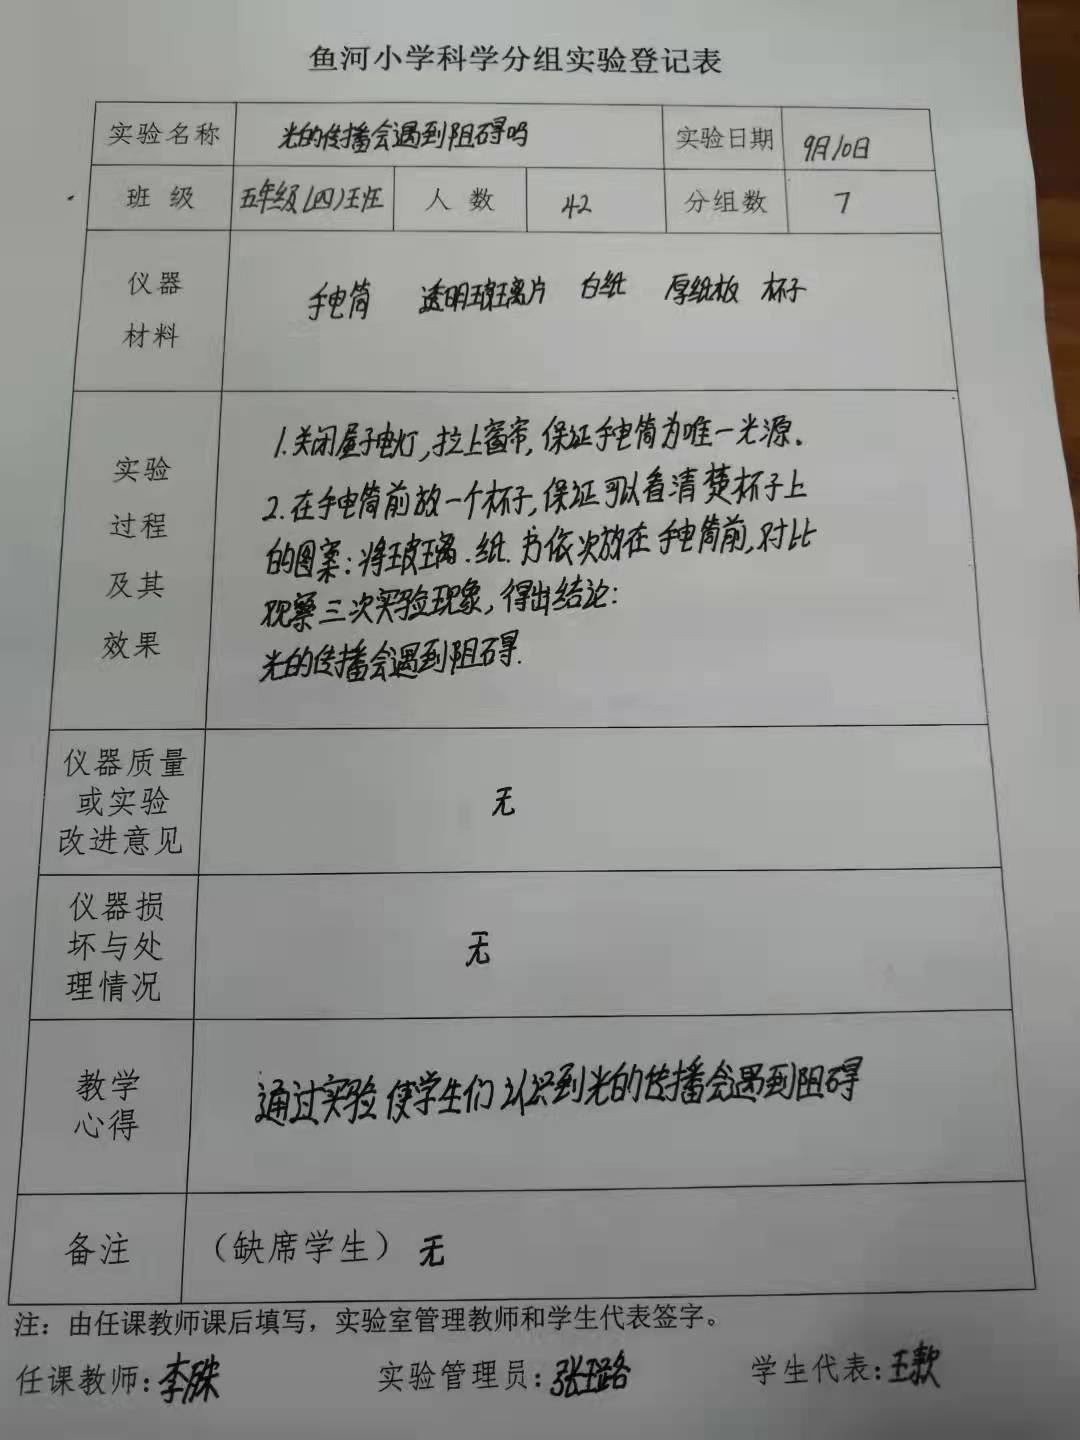 鱼河小学科学分组实验登记表
实验名称 光的传播会遇到阻碍吗 实验日期 9月10日
班 级 五年级(四)班 人 数 42 分组数 7
仪器
材料
手电筒 透明玻璃片 白纸 厚纸板 杯子
实验
过程
及其
效果
1.关闭屋子电灯,拉上窗帘,保证手电筒为唯一光源.
2.在手电筒前放一个杯子,保证可以看清楚杯子上
的图案:将玻璃.纸.书依次放在手电筒前,对比
观察三次实验现象,得出结论:
光的传播会遇到阻碍.
仪器质量
或实验
改进意见
无
仪器损
坏与处
理情况
无
教学
心得
通过实验使学生们认识到光的传播会遇到阻碍
备注 （缺席学生） 无
注：由任课教师课后填写，实验室管理教师和学生代表签字。
任课教师：李 实验管理员：张璐 学生代表：王歆